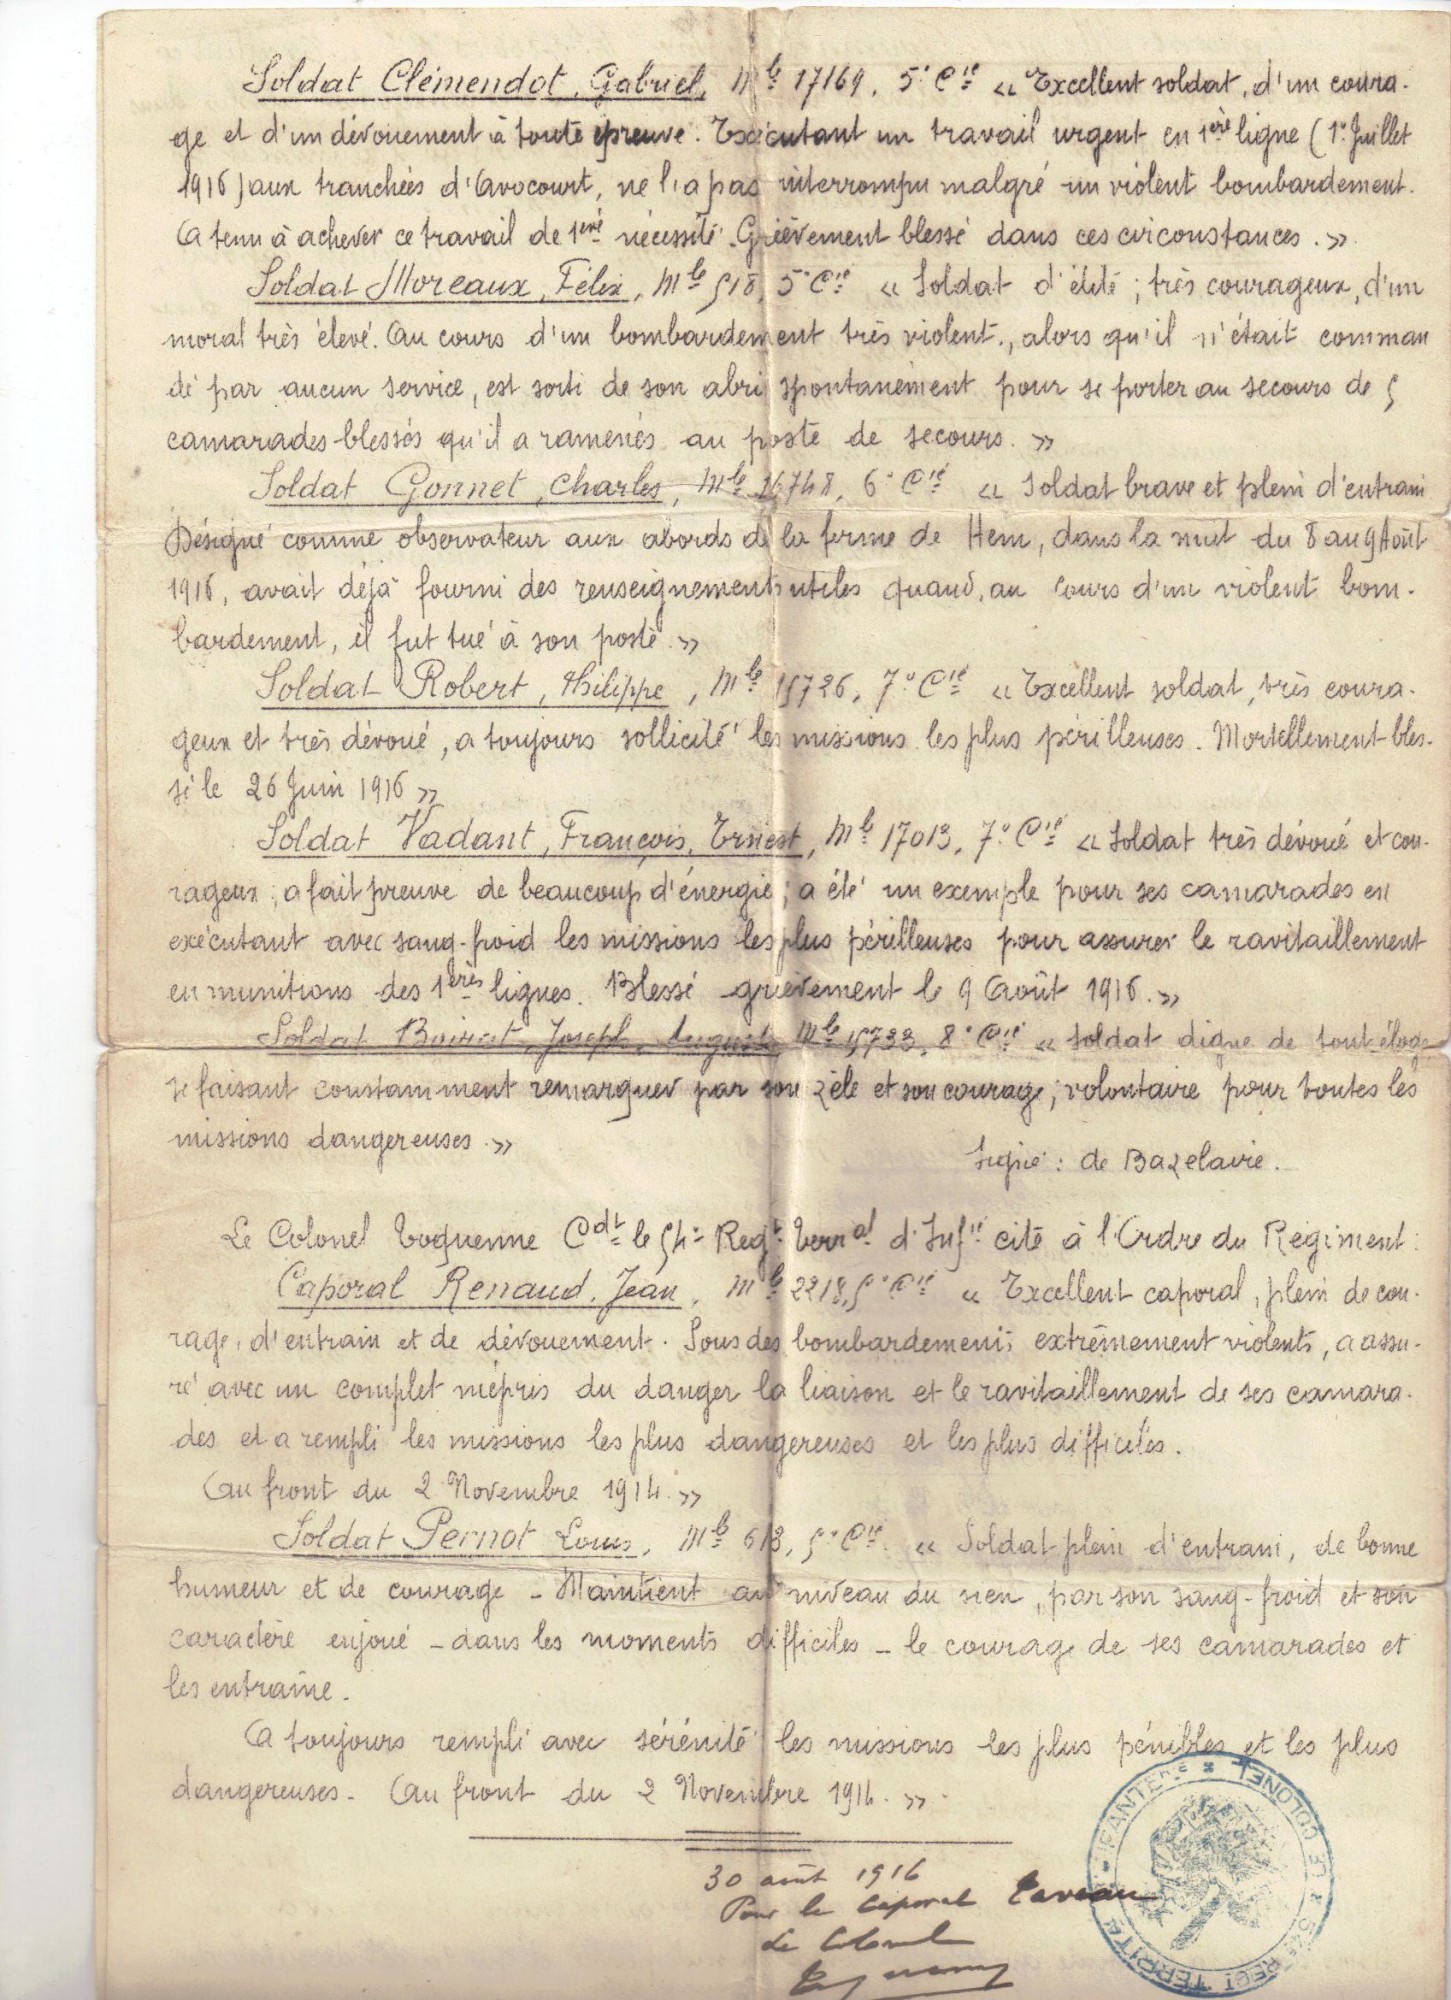 Soldat Clémendot, Gabriel, Mle 17169, 5e Cie « Excellent soldat, d'un coura-
ge et d'un dévouement à toute épreuve. Exécutant un travail urgent en 1ère ligne (1er Juillet
1916) aux tranchées d'Avocourt, ne l'a pas interrompu malgré un violent bombardement.
A tenu à achever ce travail de 1ère nécessité. Grièvement blessé dans ces circonstances. »
Soldat Moreaux, Félix, Mle 518, 5e Cie « Soldat d'élite ; très courageux, d'un
moral très élevé. Au cours d'un bombardement très violent, alors qu'il n'était comman
dé par aucun service, est sorti de son abri spontanément pour se porter au secours de 5
camarades blessés qu'il a ramenés au poste de secours. »
Soldat Gonnet, Charles, Mle 16748, 6e Cie « Soldat brave et plein d'entrain
Désigné comme observateur aux abords de la ferme de Hem, dans la nuit du 8 au 9 Août
1916, avait déjà fourni des renseignements utiles quand, au cours d'un violent bom-
bardement, il fut tué à son poste. »
Soldat Robert, Philippe, Mle 15726, 7e Cie « Excellent soldat, très coura-
geux et très dévoué, a toujours sollicité les missions les plus périlleuses. Mortellement bles-
sé le 26 Juin 1916 »
Soldat Vadant, François, Ernest, Mle 17013, 7e Cie « Soldat très dévoué et cou-
rageux ; a fait preuve de beaucoup d'énergie ; a été un exemple pour ses camarades en
exécutant avec sang-froid les missions les plus périlleuses pour assurer le ravitaillement
en munitions des 1ères lignes. Blessé grièvement le 9 Août 1916. »
Soldat Joseph, Auguste Mle 15733, 8e Cie « Soldat digne de tout éloge
se faisant constamment remarquer par son zèle et son courage ; volontaire pour toutes les
missions dangereuses. »
Signé : de Bazelaire.
Le Colonel Toquenne Cdt le 54e Regt Terral d'Infie cite à l'Ordre du Régiment :
Caporal Renaud, Jean, Mle 2218, 5e Cie « Excellent caporal, plein de cou-
rage, d'entrain et de dévouement. Sous des bombardements extrêmement violents, a assu-
ré avec un complet mépris du danger la liaison et le ravitaillement de ses camara-
des et a rempli les missions les plus dangereuses et les plus difficiles.
Au front du 2 Novembre 1914. »
Soldat Pernot Louis, Mle 613, 5e Cie. « Soldat plein d'entrain, de bonne
humeur et de courage - Maintient au niveau du sien, par son sang-froid et son
caractère enjoué - dans les moments difficiles - le courage de ses camarades et
les entraîne.
A toujours rempli avec sérénité les missions les plus pénibles et les plus
dangereuses. Au front du 2 Novembre 1914. »
30 août 1916
Pour le Caporal Taveau
Le Colonel
LE COLONEL * 54e REGt TERRITAL